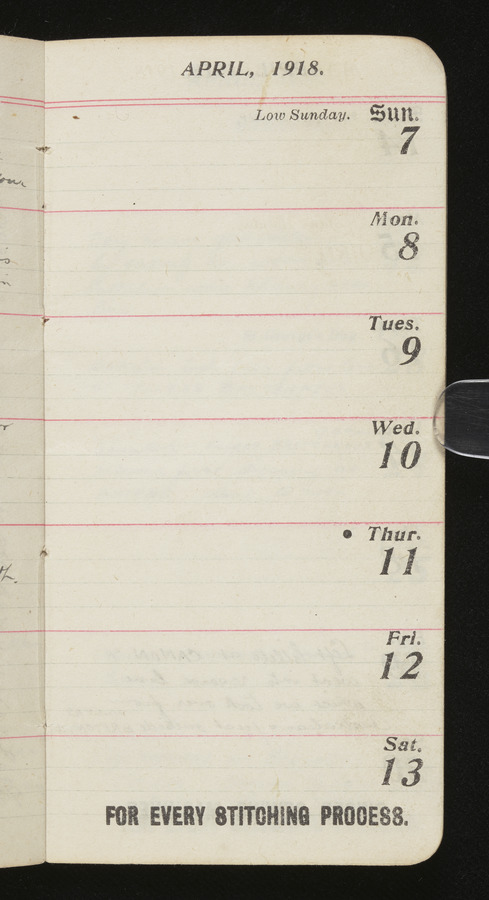 APRIL, 1918.
Low Sunday. Sun.
7
Mon.
8
Tues.
9
Wed.
10
Thur.
11
Fri.
12
Sat.
13
FOR EVERY STITCHING PROCESS.